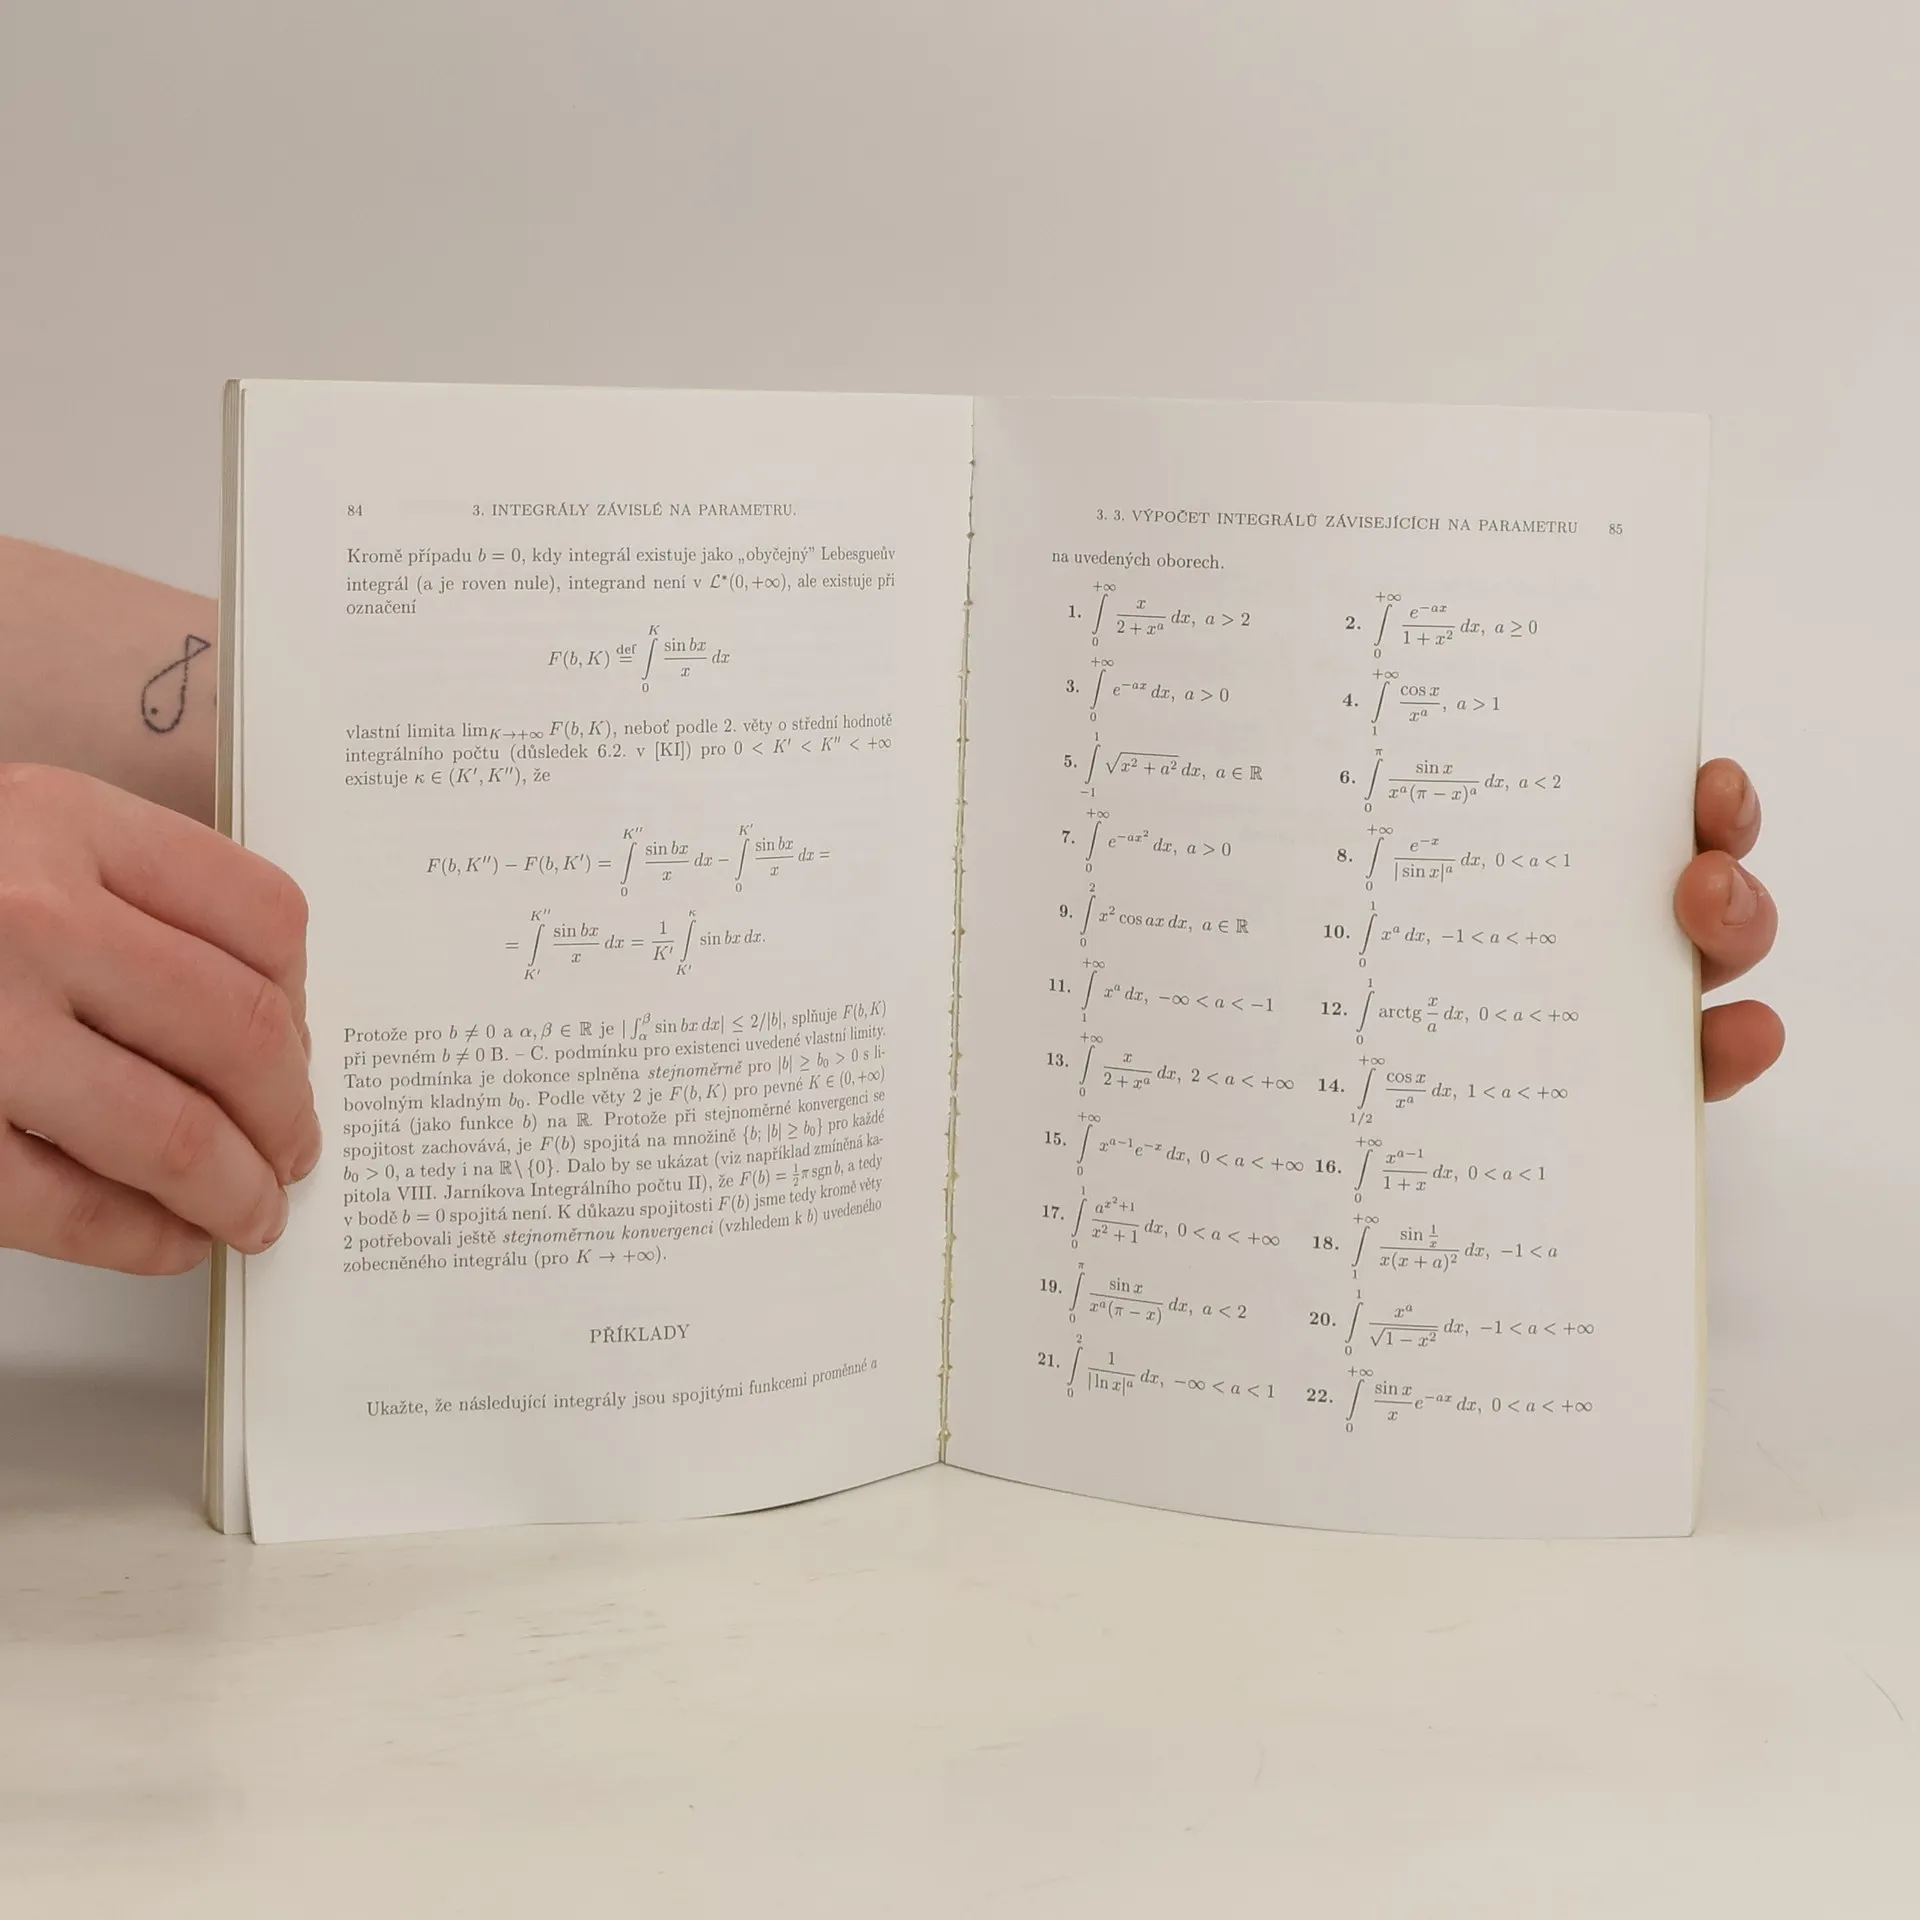 84 3. INTEGRÁLY ZÁVISLÉ NA PARAMETRU.
Kromě případu b = 0, kdy integrál existuje jako „obyčejný” Lebesgueův
integrál (a je roven nule), integrand není v ℒ*(0, +∞), ale existuje při
označení
F(b, K) def= ∫_0^K (sin bx)/x dx
vlastní limita lim_{K→+∞} F(b, K), neboť podle 2. věty o střední hodnotě
integrálního počtu (důsledek 6.2. v [KI]) pro 0 < K′ < K″ < +∞
existuje κ ∈ (K′, K″), že
F(b, K″) − F(b, K′) = ∫_0^{K″} (sin bx)/x dx − ∫_0^{K′} (sin bx)/x dx =
= ∫_{K′}^{K″} (sin bx)/x dx = 1/K′ ∫_{K′}^κ sin bx dx.
Protože pro b ≠ 0 a α, β ∈ ℝ je |∫_α^β sin bx dx| ≤ 2/|b|, splňuje F(b, K)
při pevném b ≠ 0 B. – C. podmínku pro existenci uvedené vlastní limity.
Tato podmínka je dokonce splněna stejnoměrně pro |b| ≥ b₀ > 0 s li-
bovolným kladným b₀. Podle věty 2 je F(b, K) pro pevné K ∈ (0, +∞)
spojitá (jako funkce b) na ℝ. Protože při stejnoměrné konvergenci se
spojitost zachovává, je F(b) spojitá na množině {b; |b| ≥ b₀} pro každé
b₀ > 0, a tedy i na ℝ \ {0}. Dalo by se ukázat (viz například zmíněná ka-
pitola VIII. Jarníkova Integrálního počtu II), že F(b) = ½π sgn b, a tedy
v bodě b = 0 spojitá není. K důkazu spojitosti F(b) jsme tedy kromě věty
2 potřebovali ještě stejnoměrnou konvergenci (vzhledem k b) uvedeného
zobecněného integrálu (pro K → +∞).
PŘÍKLADY
Ukažte, že následující integrály jsou spojitými funkcemi proměnné a
3. 3. VÝPOČET INTEGRÁLŮ ZÁVISEJÍCÍCH NA PARAMETRU 85
na uvedených oborech.
1. ∫_0^{+∞} x/(2 + x^a) dx, a > 2 2. ∫_0^{+∞} e^{−ax}/(1 + x²) dx, a ≥ 0
3. ∫_0^{+∞} e^{−ax} dx, a > 0 4. ∫_1^{+∞} (cos x)/x^a, a > 1
5. ∫_{−1}^1 √(x² + a²) dx, a ∈ ℝ 6. ∫_0^π (sin x)/(x^a(π − x)^a) dx, a < 2
7. ∫_0^{+∞} e^{−ax²} dx, a > 0 8. ∫_0^{+∞} e^{−x}/|sin x|^a dx, 0 < a < 1
9. ∫_0^2 x² cos ax dx, a ∈ ℝ 10. ∫_0^1 x^a dx, −1 < a < +∞
11. ∫_1^{+∞} x^a dx, −∞ < a < −1 12. ∫_0^1 arctg x/a dx, 0 < a < +∞
13. ∫_0^{+∞} x/(2 + x^a) dx, 2 < a < +∞ 14. ∫_{1/2}^{+∞} (cos x)/x^a dx, 1 < a < +∞
15. ∫_0^{+∞} x^{a−1}e^{−x} dx, 0 < a < +∞ 16. ∫_0^{+∞} x^{a−1}/(1 + x) dx, 0 < a < 1
17. ∫_0^1 a^{x²+1}/(x² + 1) dx, 0 < a < +∞ 18. ∫_1^{+∞} (sin 1/x)/(x(x + a)²) dx, −1 < a
19. ∫_0^π (sin x)/(x^a(π − x)) dx, a < 2 20. ∫_0^1 x^a/√(1 − x²) dx, −1 < a < +∞
21. ∫_0^2 1/|ln x|^a dx, −∞ < a < 1 22. ∫_0^{+∞} (sin x)/x e^{−ax} dx, 0 < a < +∞